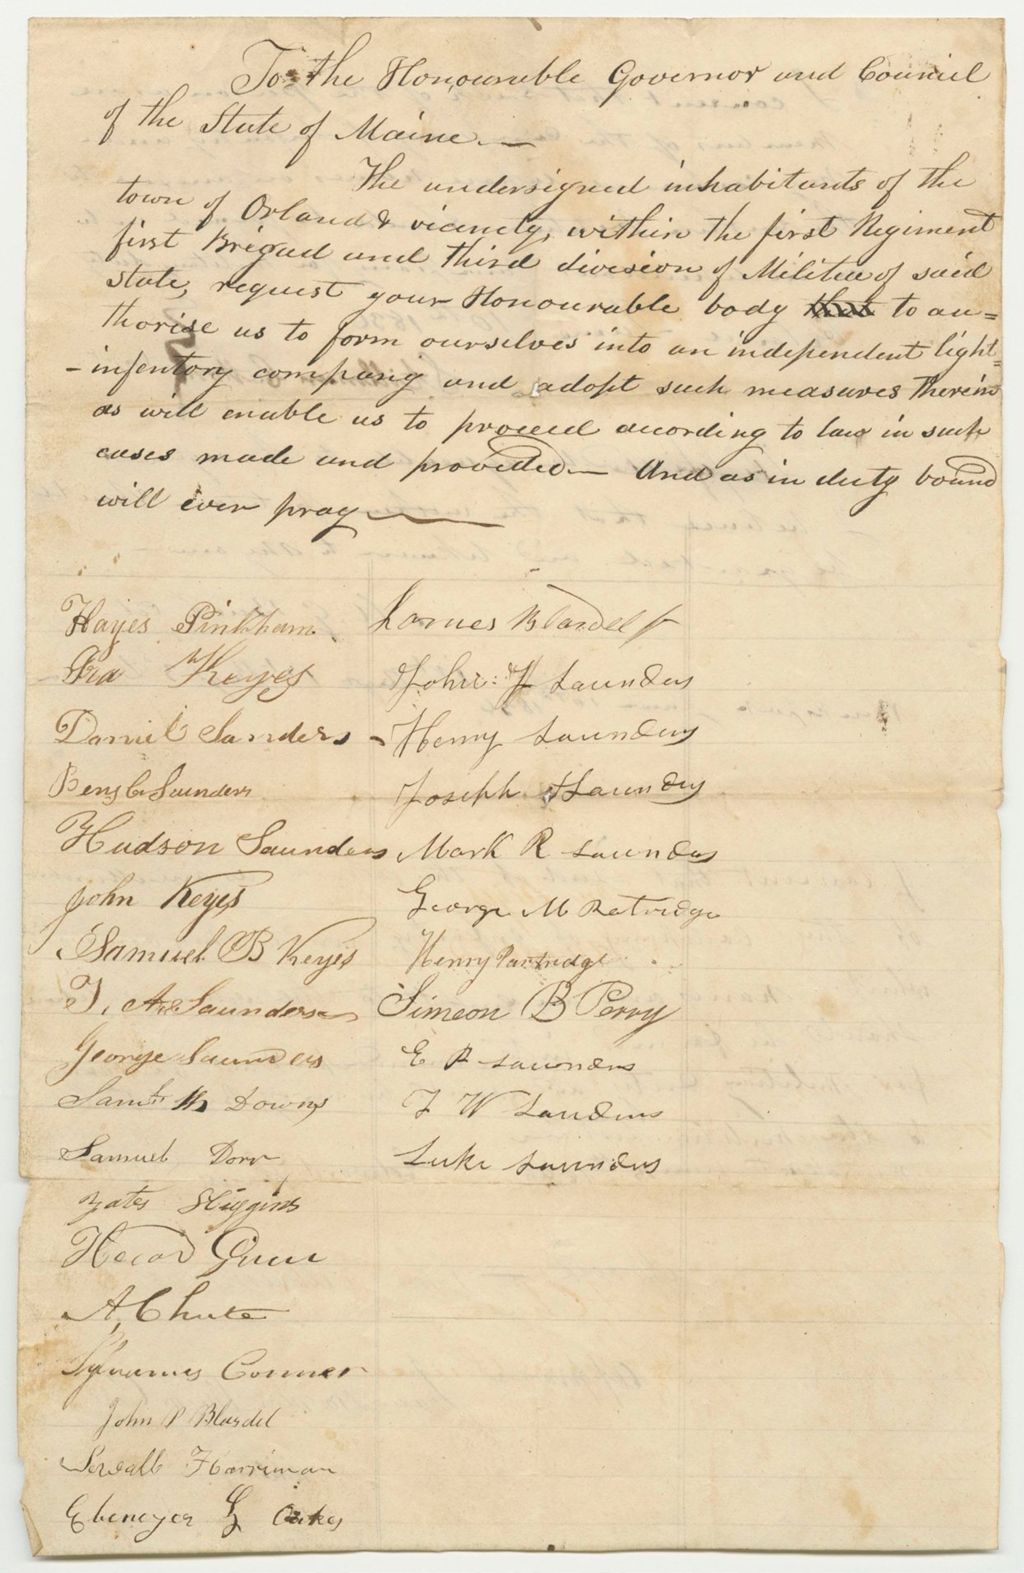 To the Honourable Governor and Council
of the State of Maine.—
The undersigned inhabitants of the
town of Orland & vicinety, within the first Regiment
first Brigad and third division of Militia of said
State, request your Honourable body that to au=
thorise us to form ourselves into an independent light=
-infentory company and adopt such measures therein
as will enable us to proceed according to law in such
cases made and provided— And as in duty bound
will ever pray —
Hayes Pinkham.
Ira Keyes
Daniel Sanders
Benj C Saunders
Hudson Saunders
John Keyes
Samuel B Keyes
T. A. Saunders
George Saunders
Saml Downs
Samuel Dorr
Yates Higgins
Hecar
A, Chute
Sylvanus Conner
John P Blasdel
Sewall Harriman
Ebenezer G Oakes
James Blasdel
John H Saunders
Henry Saunders
Joseph H Saunders
Mark R Saunders
George M Patridge
Henry Partridge
Simeon B Perry
E P Saunders
T W Sanders
Luke Saunders